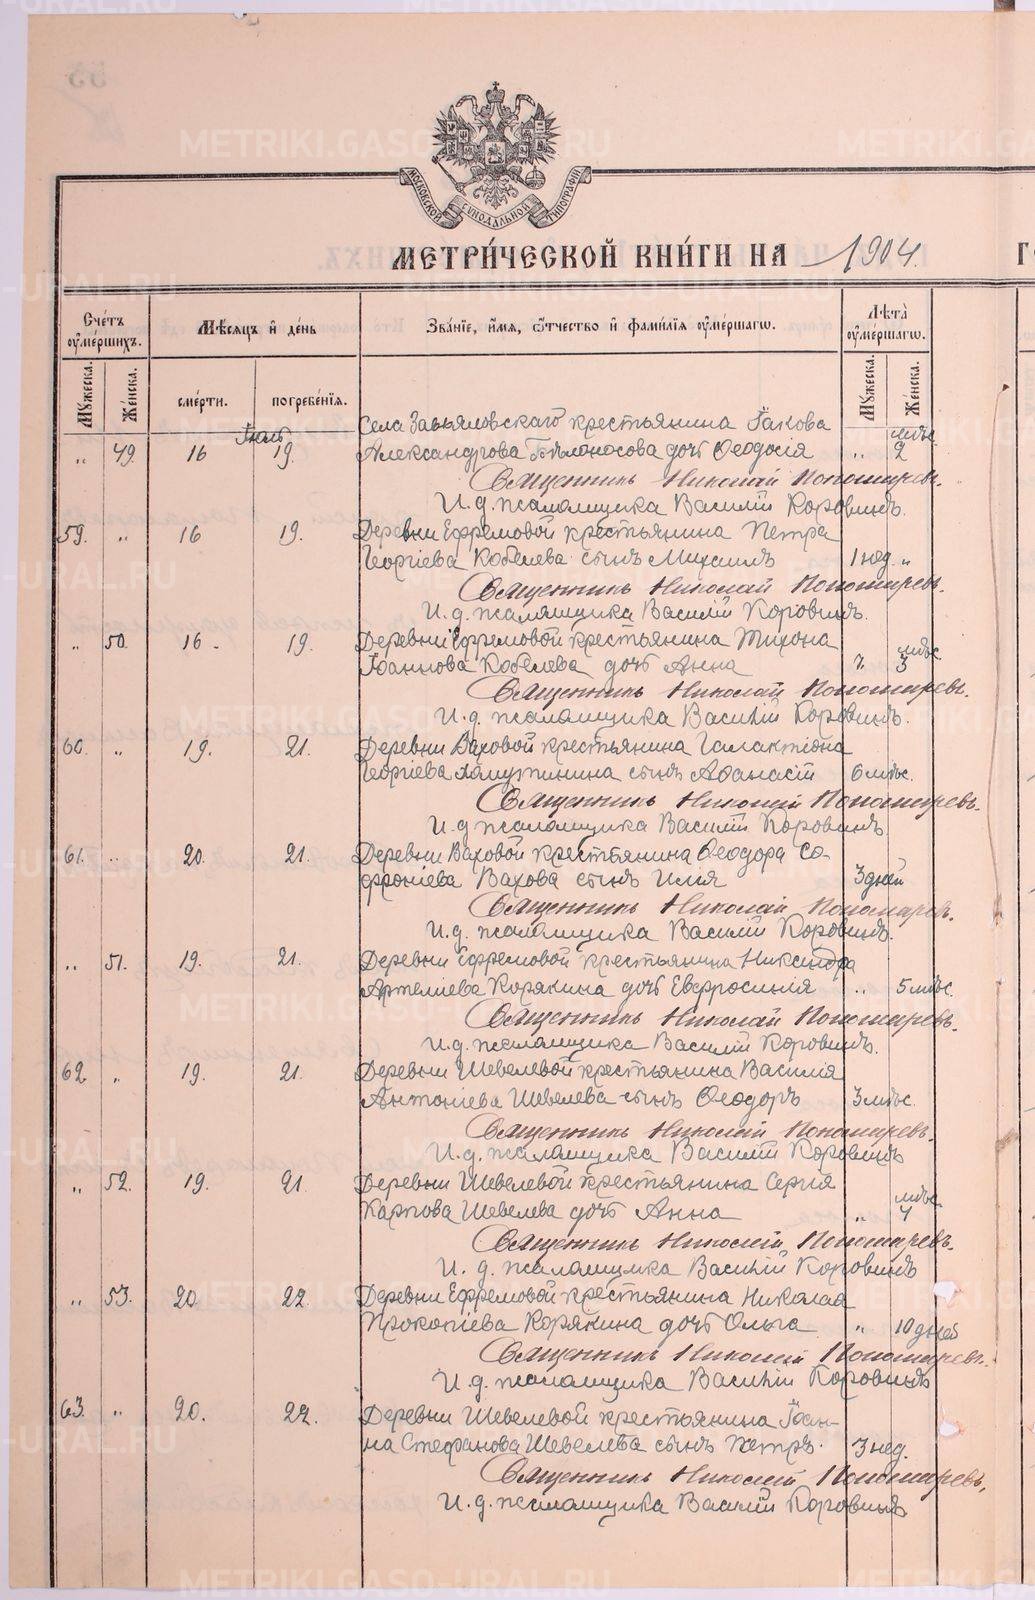 МОСКОВСКОЙ СУНОДАЛЬНОЙ ТИПОГРАФІИ
МЕТРИ́ЧЕСКОЙ КНИ́ГИ НА 1904. Г
Сче́тъ ѹме́ршихъ. Мѣ́сяцъ и де́нь Зва́ніе, и́мя, ѻ́тчество и фами́лія ѹме́ршагѡ. Лѣ́та ѹме́ршагѡ.
Мꙋжеска. Же́нска. сме́рти. погребе́нія. Мꙋжеска. Же́нска.
Села Завьяловскаго крестьянина Іакова
Іюль мѣс.
„ 49. 16 19. Александрова Бѣлоносова дочь Ѳеодосія „ 2
Священникъ Николай Пономаревъ.
И. д. псаломщика Василій Коровинъ.
59. „ 16 19. Деревни Ефремовой крестьянина Петра
Георгіева Кобелева сынъ Михаилъ 1 нед. „
Священникъ Николай Пономаревъ.
И. д. псаломщика Василій Коровинъ.
„ 50. 16. 19. Деревни Ефремовой крестьянина Тихона мѣс.
Іоаннова Кобелева дочь Анна „ 3
Священникъ Николай Пономаревъ.
И. д. псаломщика Василій Коровинъ.
60. „ 19. 21. Деревни Ваховой крестьянина Галактіона
Георгіева сынъ Аѳанасій 6 мѣс.
Священникъ Николай Пономаревъ.
И. д. псаломщика Василій Коровинъ.
61. „ 20. 21. Деревни Ваховой крестьянина Ѳеодора Со-
фроніева Вахова сынъ Илія 3 дней
Священникъ Николай Пономаревъ.
И. д. псаломщика Василій Коровинъ.
„ 51. 19. 21. Деревни Ефремовой крестьянина Никандра
Артеміева Корякина дочь Евфросинія „ 5 мѣс.
Священникъ Николай Пономаревъ.
И. д. псаломщика Василій Коровинъ.
62. „ 19. 21. Деревни Шевелевой крестьянина Василія
Антоніева Шевелева сынъ Ѳеодоръ 3 мѣс.
Священникъ Николай Пономаревъ.
И. д. псаломщика Василій Коровинъ
„ 52. 19. 21. Деревни Шевелевой крестьянина Сергія мѣс.
Карпова Шевелева дочь Анна „ 4
Священникъ Николай Пономаревъ.
И. д. псаломщика Василій Коровинъ
„ 53. 20. 22. Деревни Ефремовой крестьянина Николая
Прокопіева Корякина дочь Ольга „ 10 дней
Священникъ Николай Пономаревъ.
И. д. псаломщика Василій Коровинъ
63. „ 20. 22. Деревни Шевелевой крестьянина Іоан-
на Стефанова Шевелева сынъ Петръ. 3 нед.
Священникъ Николай Пономаревъ,
И. д. псаломщика Василій Коровинъ
METRIKI.GASO-URAL.RU